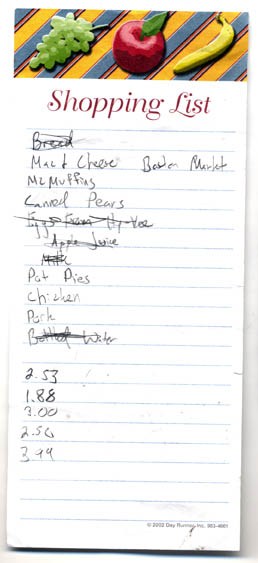 Shopping List
Bread
Mac & Cheese Boston Market
McMuffins
Canned Pears
Eggs From Hy-Vee
Apple Juice
Milk
Pot Pies
Chicken
Pork
Bottled Water
2.53
1.88
3.00
2.50
3.99
© 2002 Day Runner, Inc. 983-4861